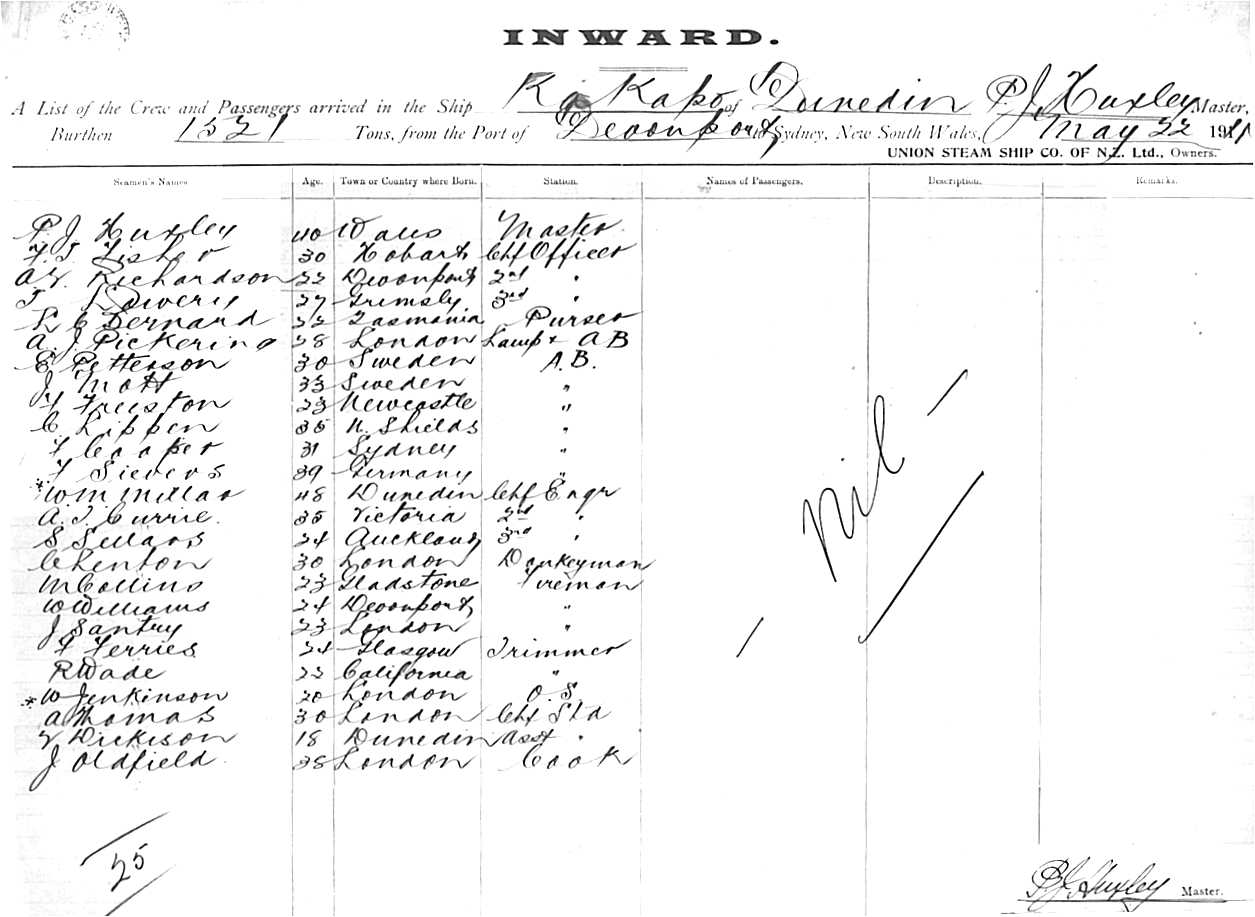 INWARD.
A List of the Crew and Passengers arrived in the Ship Kakapo of Dunedin P. J. Huxley Master,
Burthen 1521 Tons, from the Port of Devonport to Sydney, New South Wales, May 22 191
UNION STEAM SHIP CO. OF N.Z. Ltd., Owners.
Seamen's Names Age. Town or Country where Born. Station. Names of Passengers. Description. Remarks.
P. J. Huxley 40 Master
Fisher 30 Hobart Chf Officer
Richardson 22 Devonport 2nd "
27 Grimsly 3rd "
L C Bernard 22 Tasmania Purser
A. J. Pickering 28 London Lamp & AB
E Petterson 30 Sweden A.B.
J Mott 33 Sweden "
F Freiston 23 Newcastle "
C Lippen 35 N. Shields "
F Cooper 31 Sydney "
F Sievers 39 Germany "
* Wm Millar 48 Dunedin Chf Engr
A. J. Currie. 35 Victoria 2nd "
S Sellars 24 Auckland 3rd "
C Lenton 30 London Donkeyman
M Collins 23 Gladstone Fireman
W Williams 24 Devonport "
J Santry 23 London "
F Ferries 24 Glasgow Trimmer
R Wade 22 California "
* W Jenkinson 20 London O.S
A Thomas 30 London Chf Std
Dickison 18 Dunedin Asst "
J Oldfield 38 London Cook
- Nil -
25
P. J. Huxley Master.